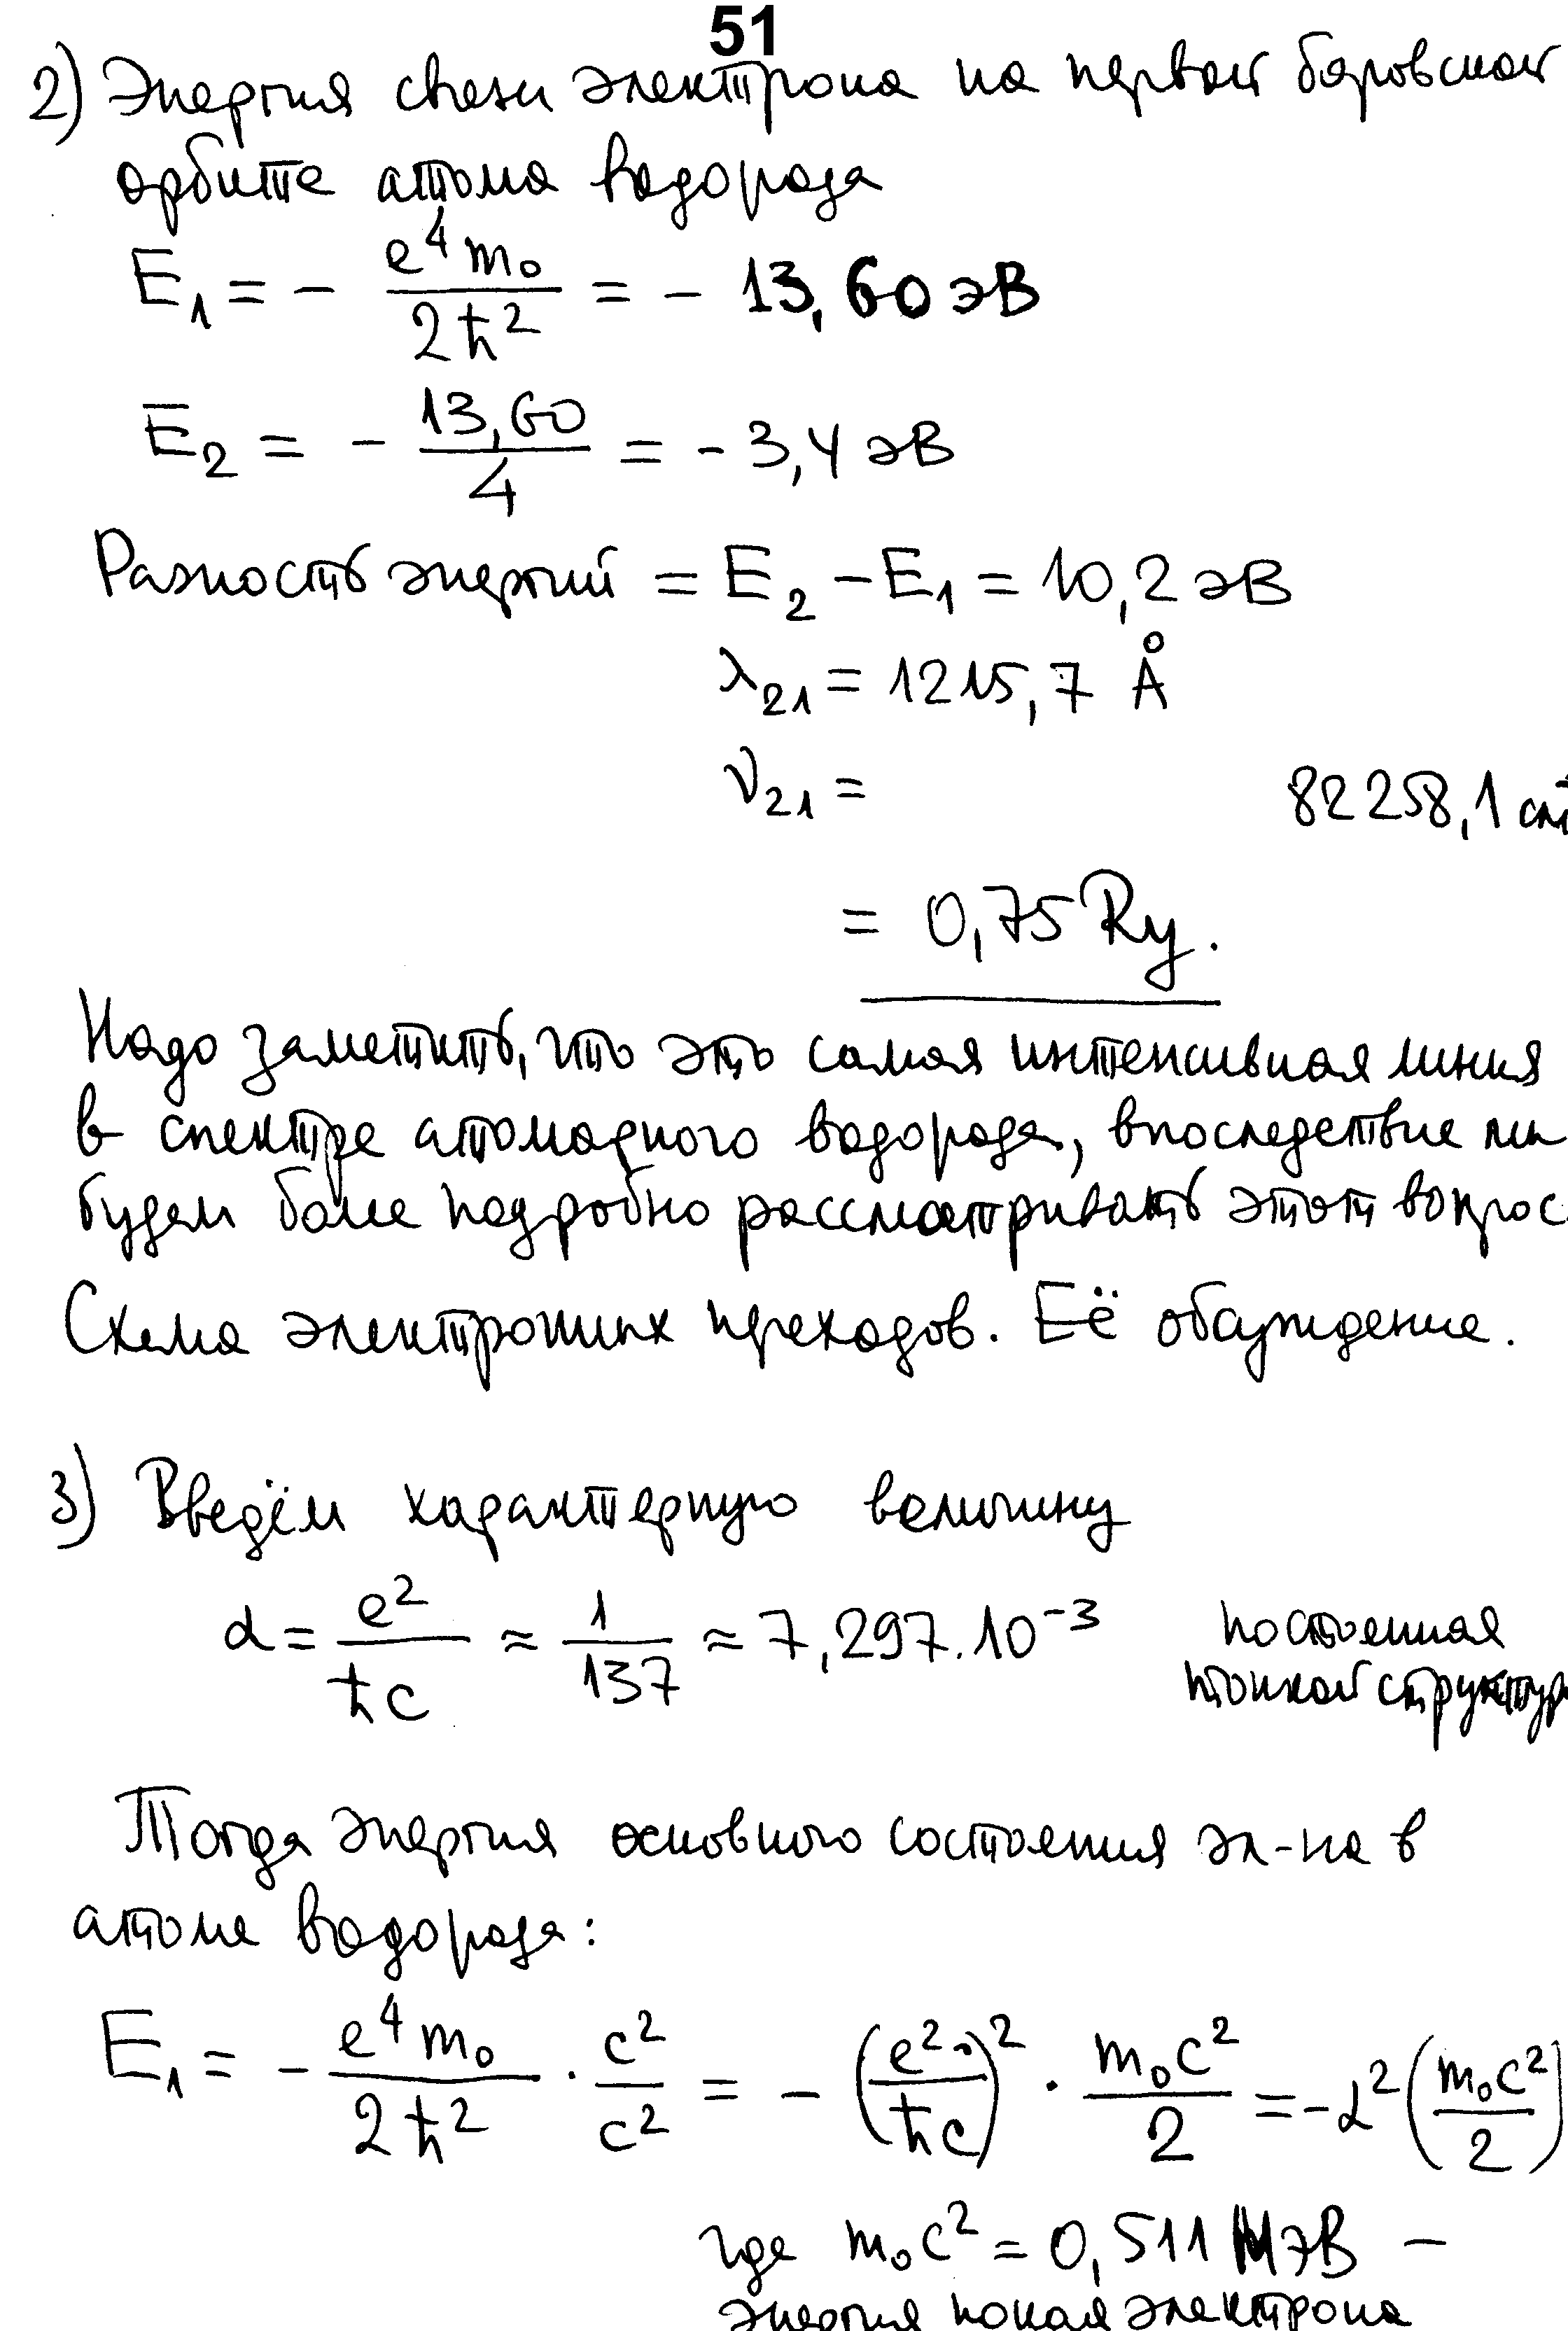 51
2) Энергия связи электрона на первой боровской
орбите атома водорода
E₁ = - e⁴m₀ / 2ħ² = - 13,60 эВ
E₂ = - 13,60 / 4 = - 3,4 эВ
Разность энергий = E₂ - E₁ = 10,2 эВ
λ₂₁ = 1215,7 Å
ν₂₁ = 82258,1 см
= 0,75 Ry.
Надо заметить, что это самая интенсивная линия
в спектре атомарного водорода, впоследствие мы
будем более подробно рассматривать этот вопрос
Схема электронных переходов. Её обсуждение.
3) Введём характерную величину
α = e² / ħc ≈ 1 / 137 ≈ 7,297·10⁻³ постоянная
тонкой структур
Тогда энергия основного состояния эл-на в
атоме водорода:
E₁ = - e⁴m₀ / 2ħ² · c² / c² = - (e² / ħc)² · m₀c² / 2 = -α² (m₀c² / 2)
где m₀c² = 0,511 МэВ –
энергия покоя электрона